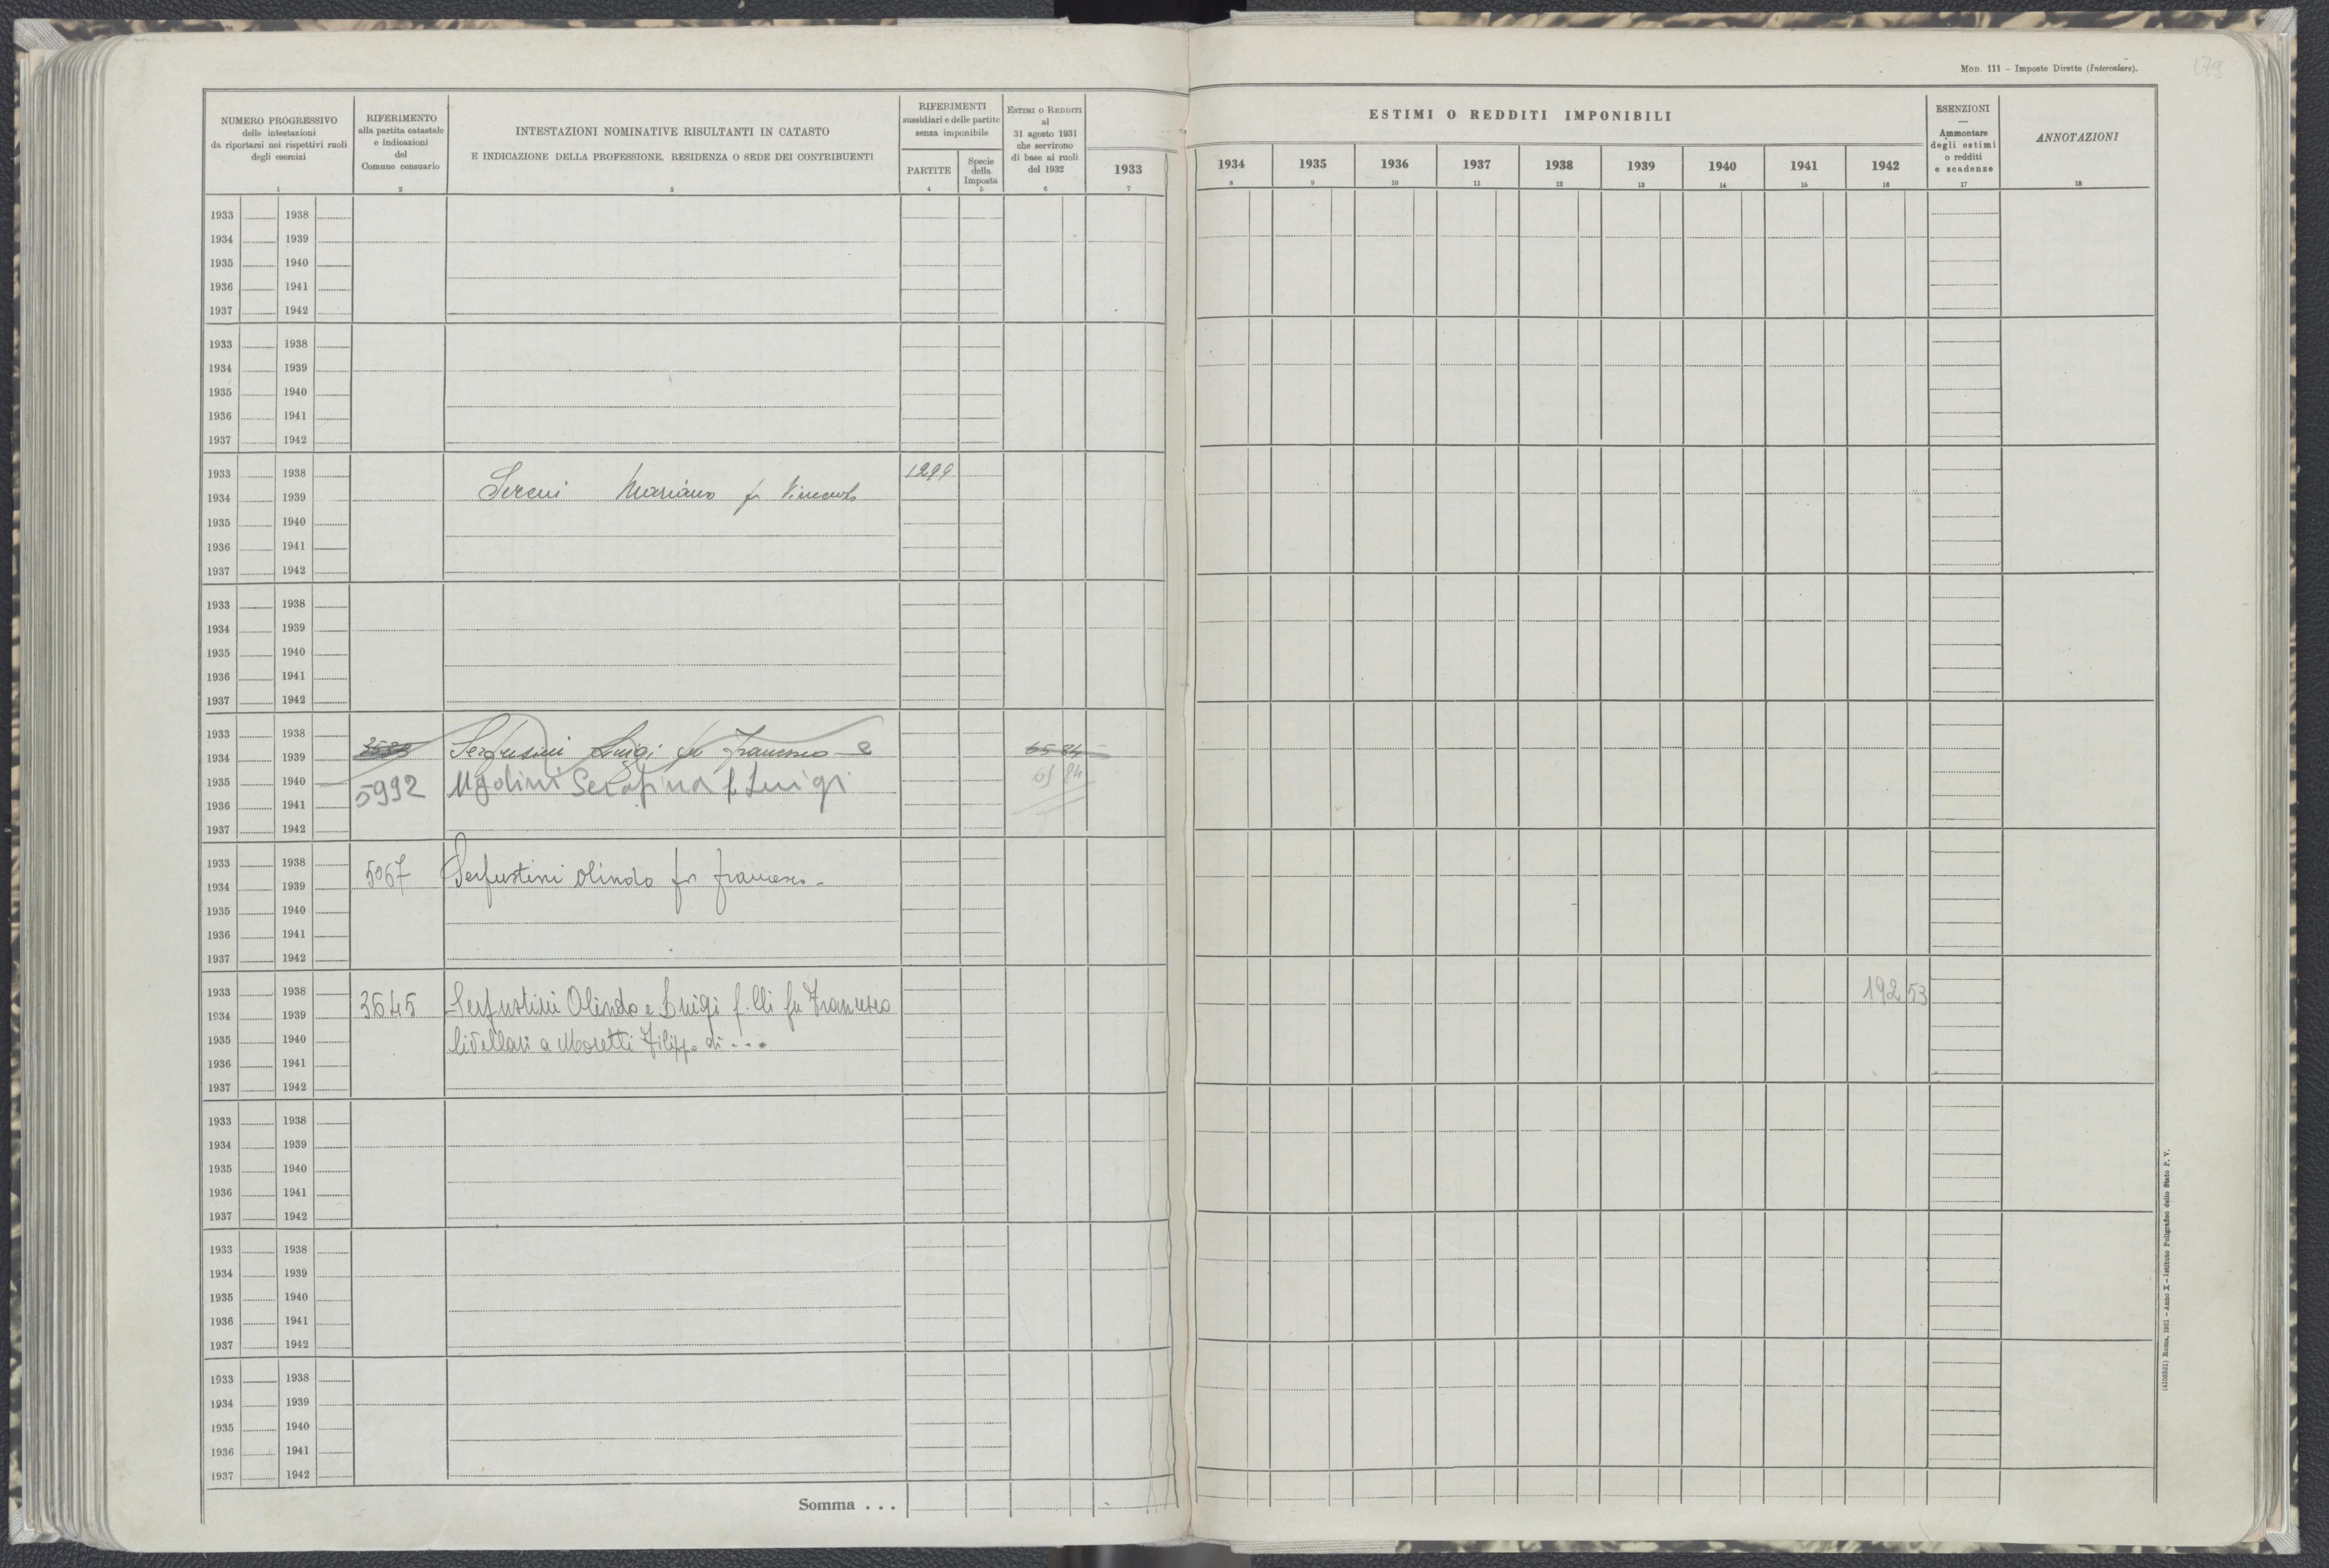 Mod. 111 - Imposte Dirette (Intercalare).
179
NUMERO PROGRESSIVO
delle intestazioni
da riportarsi nei rispettivi ruoli
degli esercizi
1
RIFERIMENTO
alla partita catastale
e indicazioni
del
Comune censuario
2
INTESTAZIONI NOMINATIVE RISULTANTI IN CATASTO
E INDICAZIONE DELLA PROFESSIONE, RESIDENZA O SEDE DEI CONTRIBUENTI
3
RIFERIMENTI
sussidiari e delle partite
senza imponibile
PARTITE
4
Specie
della
Imposta
5
ESTIMI O REDDITI
al
31 agosto 1931
che servirono
di base ai ruoli
del 1932
6
1933
7
ESTIMI O REDDITI IMPONIBILI
1934 1935 1936 1937 1938 1939 1940 1941 1942
8 9 10 11 12 13 14 15 16
ESENZIONI
—
Ammontare
degli estimi
o redditi
e scadenze
17
ANNOTAZIONI
18
1933 1938
1934 1939
1935 1940
1936 1941
1937 1942
1933 1938
1934 1939
1935 1940
1936 1941
1937 1942
1933 1938 1299
1934 1939 Sereni Mariano fu Vincenzo
1935 1940
1936 1941
1937 1942
1933 1938
1934 1939
1935 1940
1936 1941
1937 1942
1933 1938
1934 1939 Luigi fu Francesco e 65 84
1935 1940 5992 Ugolini Serafina fu Luigi 65 84
1936 1941
1937 1942
1933 1938
1934 1939 5067 Serfustini Olindo fu Francesco
1935 1940
1936 1941
1937 1942
1933 1938 192 53
1934 1939 3645 Serfustini Olindo e Luigi f.lli fu Francesco
1935 1940 livellari a Moretti Filippo di ...
1936 1941
1937 1942
1933 1938
1934 1939
1935 1940
1936 1941
1937 1942
1933 1938
1934 1939
1935 1940
1936 1941
1937 1942
1933 1938
1934 1939
1935 1940
1936 1941
1937 1942
Somma . . .
(4103551) Roma, 1931 - Anno X - Istituto Poligrafico dello Stato P. V.